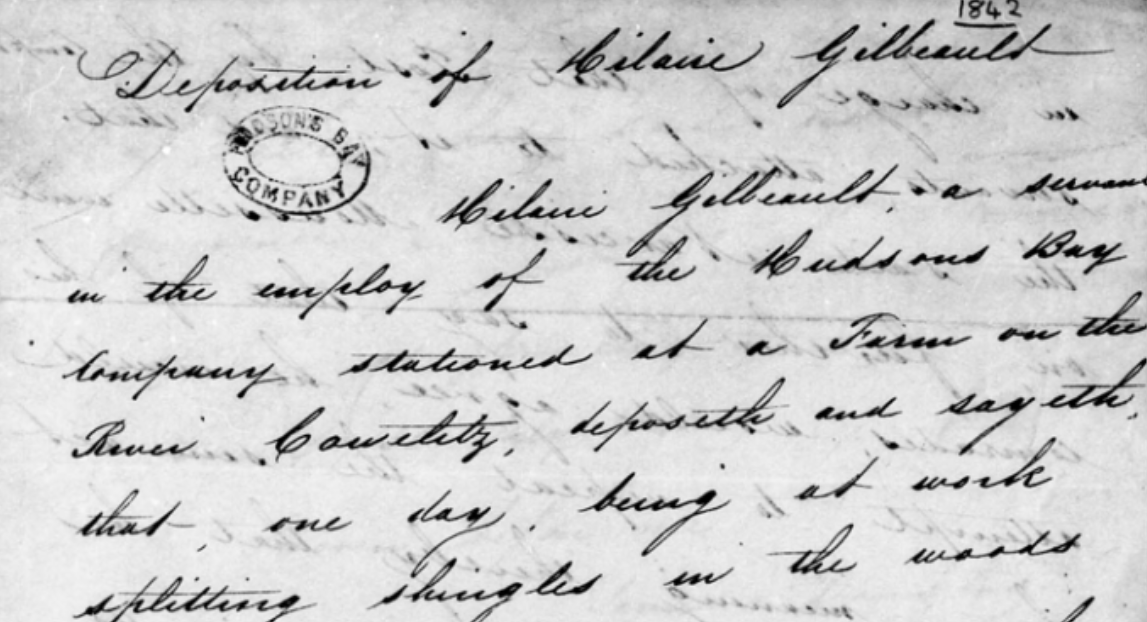 1842
Deposition of Hilaire Gilbeault
HUDSON'S BAY
COMPANY
Hilaire Gilbeault, a servant
in the employ of the Hudsons Bay
Company stationed at a Farm on the
River Cowelitz, deposeth and sayeth,
that, one day, being at work
splitting shingles in the woods